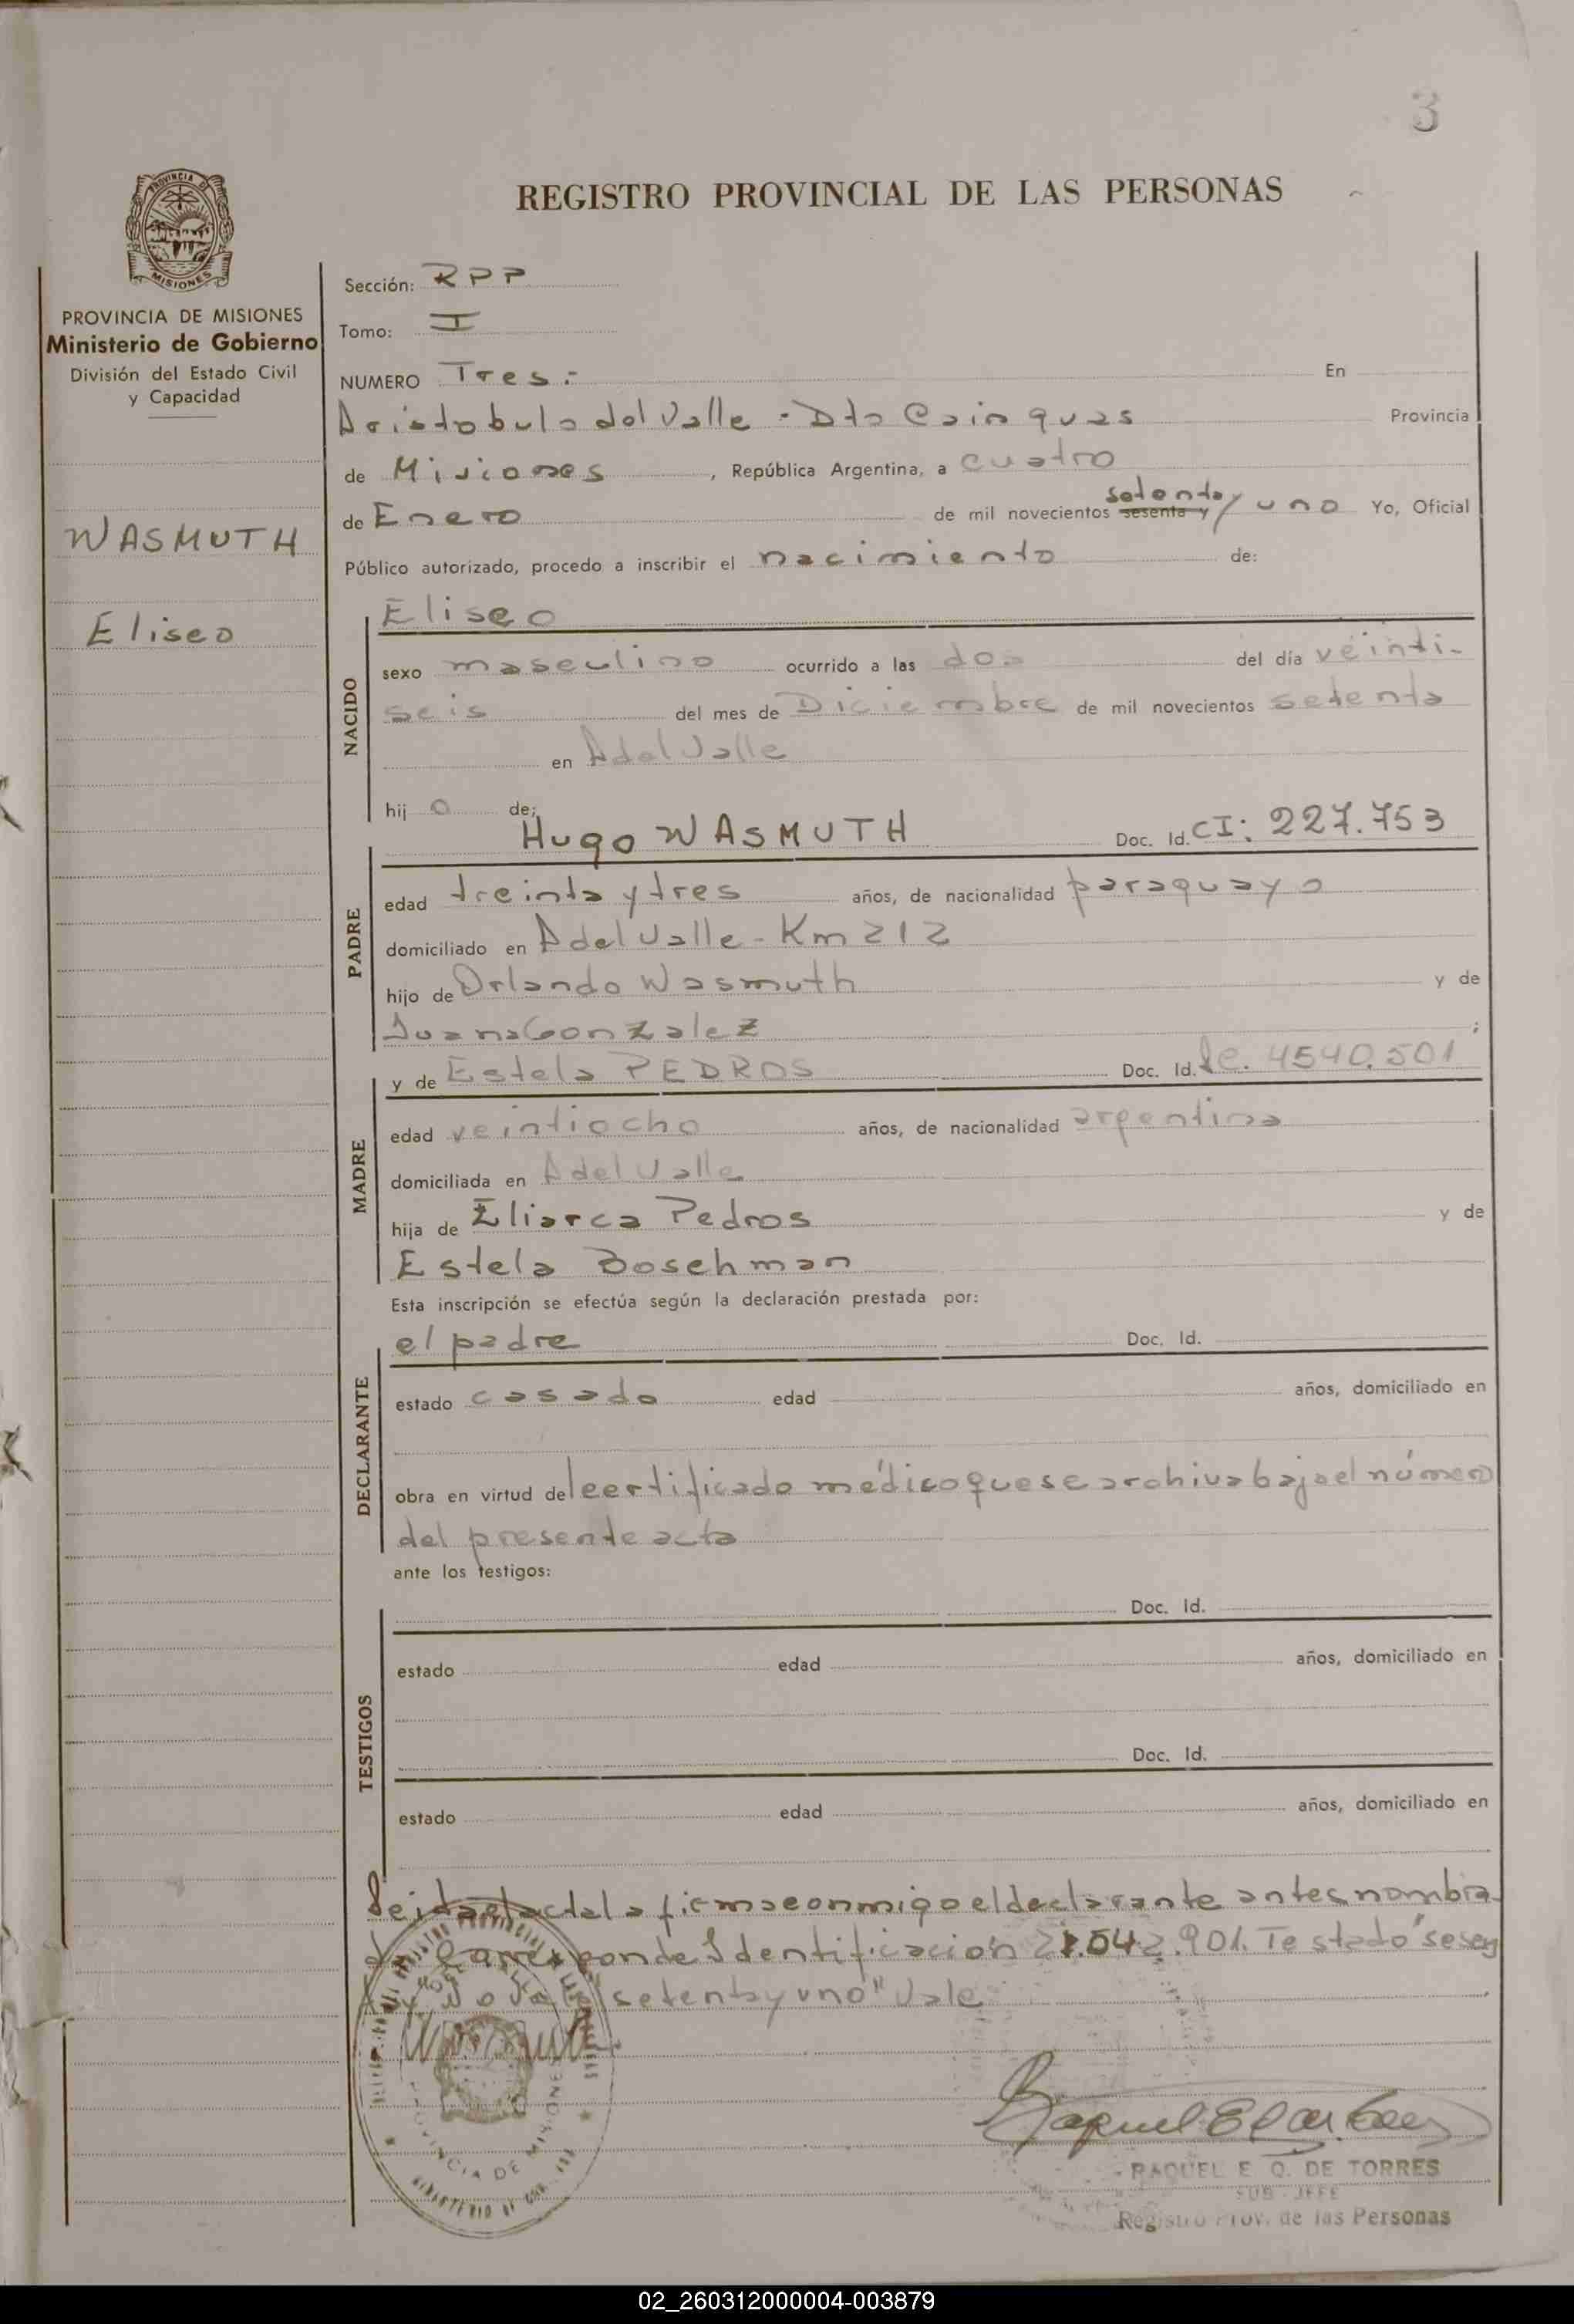 3
REGISTRO PROVINCIAL DE LAS PERSONAS
PROVINCIA DE MISIONES
Ministerio de Gobierno
División del Estado Civil
y Capacidad
WASMUTH
Eliseo
Sección: RPP
Tomo: I
NUMERO Tres.- En
Aristobulo del Valle - Dto Cainguas Provincia
de Misiones, República Argentina, a cuatro
de Enero de mil novecientos sesenta y setenta y uno Yo, Oficial
Público autorizado, procedo a inscribir el nacimiento de:
NACIDO
Eliseo
sexo masculino ocurrido a las dos del día veinti-
seis del mes de Diciembre de mil novecientos setenta
en A del Valle
hij o de;
PADRE
Hugo WASMUTH Doc. Id. CI: 227.753
edad treinta y tres años, de nacionalidad paraguayo
domiciliado en A del Valle - Km 212
hijo de Orlando Wasmuth y de
Juana Gonzalez ;
MADRE
y de Estela PEDROS Doc. Id. lc. 4540.501
edad veintiocho años, de nacionalidad argentina
domiciliada en A del Valle
hija de Eliarca Pedros y de
Estela Boschman
Esta inscripción se efectúa según la declaración prestada por:
DECLARANTE
el padre Doc. Id.
estado casado edad años, domiciliado en
obra en virtud del certificado médico que se archiva bajo el número
del presente acta
ante los testigos:
TESTIGOS
Doc. Id.
estado edad años, domiciliado en
Doc. Id.
estado edad años, domiciliado en
Leida el acta la firma conmigo el declarante antes nombra-
do. Corresponde Identificación 21.542.901. Testado "sesen
setenta y uno" Vale
RAQUEL E. Q. DE TORRES
SUB-JEFE
Registro Prov. de las Personas
02_260312000004-003879